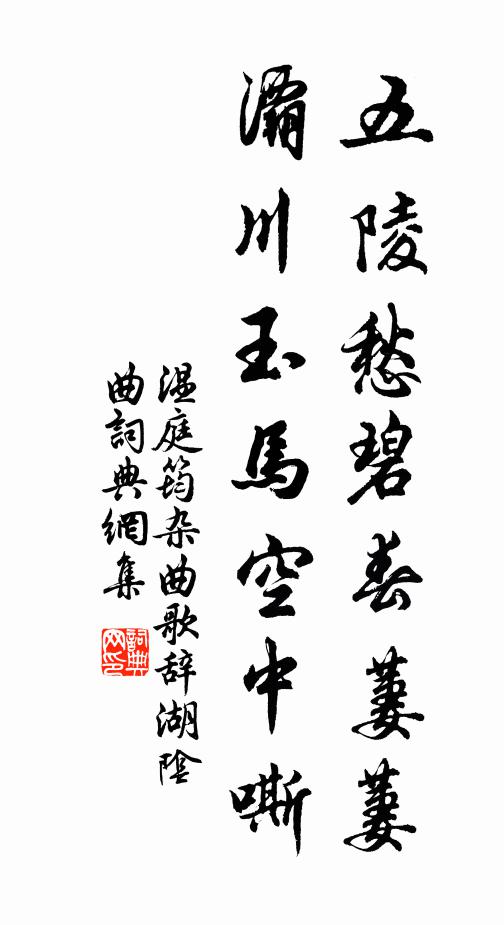 五陵愁碧春萋萋
灞川玉馬空中嘶
温庭筠杂曲歌辞湖陰
曲詞典網集
詞典网印